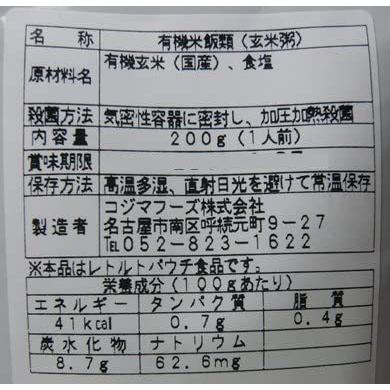 名　称 有機米飯類（玄米粥）
原材料名 有機玄米（国産）、食塩
殺菌方法 気密性容器に密封し、加圧加熱殺菌
内容量 200g（1人前）
賞味期限
保存方法 高温多湿、直射日光を避けて常温保存
製造者 コジマフーズ株式会社
名古屋市南区呼続元町9－27
TEL052－823－1622
※本品はレトルトパウチ食品です。
栄養成分（100gあたり）
エネルギー タンパク質 脂質
41kcal 0.7g 0.4g
炭水化物 ナトリウム
8.7g 62.6mg